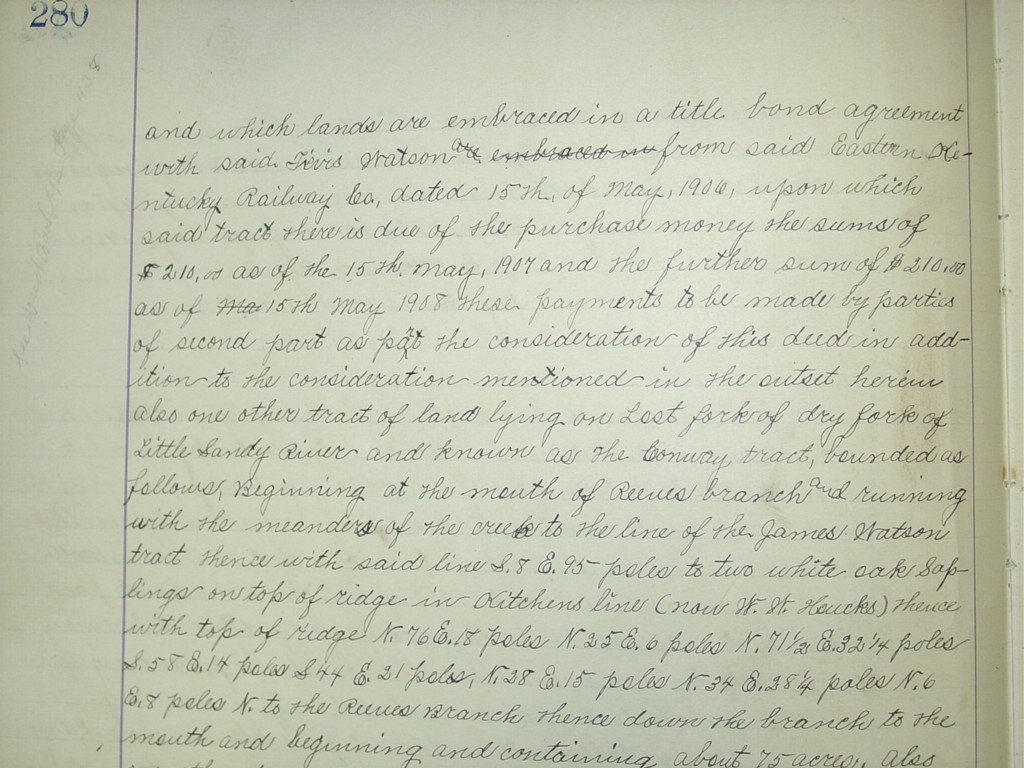 280
and which lands are embraced in a title bond agreement
with said Tivis Watson are embraced in from said Eastern Ke-
ntucky Railway Co, dated 15th, of May, 1906, upon which
said tract there is due of the purchase money the sums of
$210,00 as of the 15th, May, 1907 and the further sum of $210,00
as of Ma 15th May 1908 these payments to be made by parties
of second part as part the consideration of this deed in add-
ition to the consideration mentioned in the outset herein
also one other tract of land lying on Lost fork of dry fork of
Little Sandy River and known as the Conway tract, bounded as
follows, Beginning at the mouth of Reeves branch and running
with the meanders of the creek to the line of the James Watson
tract thence with said line S.8 E.95 poles to two white oak Sap-
lings on top of ridge in Kitchens line (now W. W. Houcks) thence
with top of ridge N. 76 E.18 poles N.25 E.6 poles N.71 1/2 E.32 1/4 poles
S.58 E.14 poles S 44 E. 21 poles, N.28 E.15 poles N.34 E.28 1/4 poles N.6
E.8 poles N. to the Reeves Branch thence down the branch to the
mouth and beginning and containing about 75 acres, Also